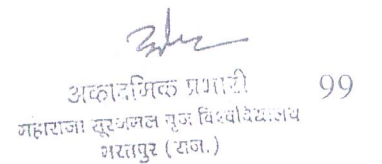 अकादमिक प्रभारी 99
महाराजा सूरजमल बृज विश्वविद्यालय
भरतपुर (राज.)